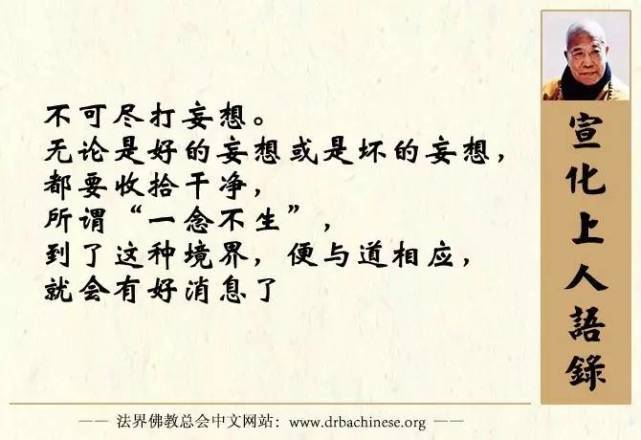 不可尽打妄想。
无论是好的妄想或是坏的妄想，
都要收拾干净，
所谓“一念不生”，
到了这种境界，便与道相应，
就会有好消息了
宣化上人語錄
—— 法界佛教总会中文网站：www.drbachinese.org ——